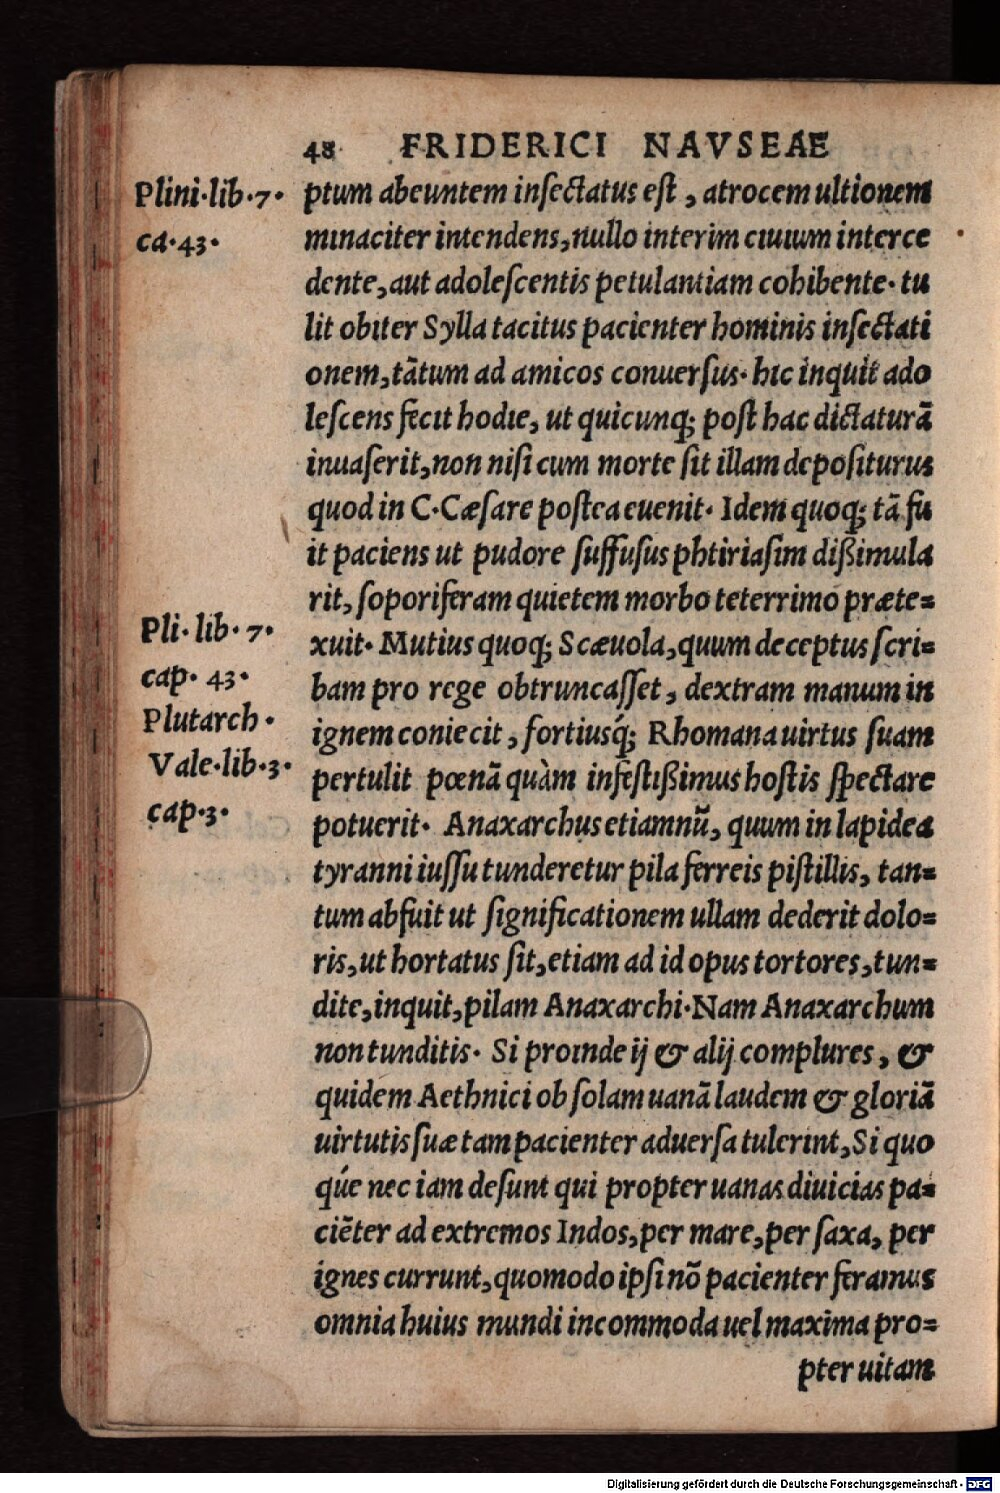 48 FRIDERICI NAVSEAE
Plini·lib·7·
ca·43·
ptum abeuntem insectatus est, atrocem ultionem
minaciter intendens, nullo interim ciuium interce
dente, aut adolescentis petulantiam cohibente· tu
lit obiter Sylla tacitus pacienter hominis insectati
onem, tātum ad amicos conuersus· hic inquit ado
lescens fecit hodie, ut quicunq; post hac dictaturā
inuaserit, non nisi cum morte sit illam depositurus
quod in C·Cæsare postea euenit· Idem quoq; tā fu
it paciens ut pudore suffusus phtiriasim dißimula
rit, soporiferam quietem morbo teterrimo præte=
Pli· lib· 7·
cap· 43·
Plutarch·
Vale·lib·3·
cap·3·
xuit· Mutius quoq; Scæuola, quum deceptus scri=
bam pro rege obtruncasset, dextram manum in
ignem coniecit, fortiusq́; Rhomana uirtus suam
pertulit pœnā quàm infestißimus hostis spectare
potuerit· Anaxarchus etiamnū, quum in lapidea
tyranni iussu tunderetur pila ferreis pistillis, tan=
tum abfuit ut significationem ullam dederit dolo=
ris, ut hortatus sit, etiam ad id opus tortores, tun=
dite, inquit, pilam Anaxarchi· Nam Anaxarchum
non tunditis· Si proinde ij & alij complures, &
quidem Aethnici ob solam uanā laudem & gloriā
uirtutis suæ tam pacienter aduersa tulerint, Si quo
q́ue nec iam desunt qui propter uanas diuicias pa=
ciēter ad extremos Indos, per mare, per saxa, per
ignes currunt, quomodo ipsi nō pacienter feramus
omnia huius mundi incommoda uel maxima pro=
pter uitam
Digitalisierung gefördert durch die Deutsche Forschungsgemeinschaft - DFG